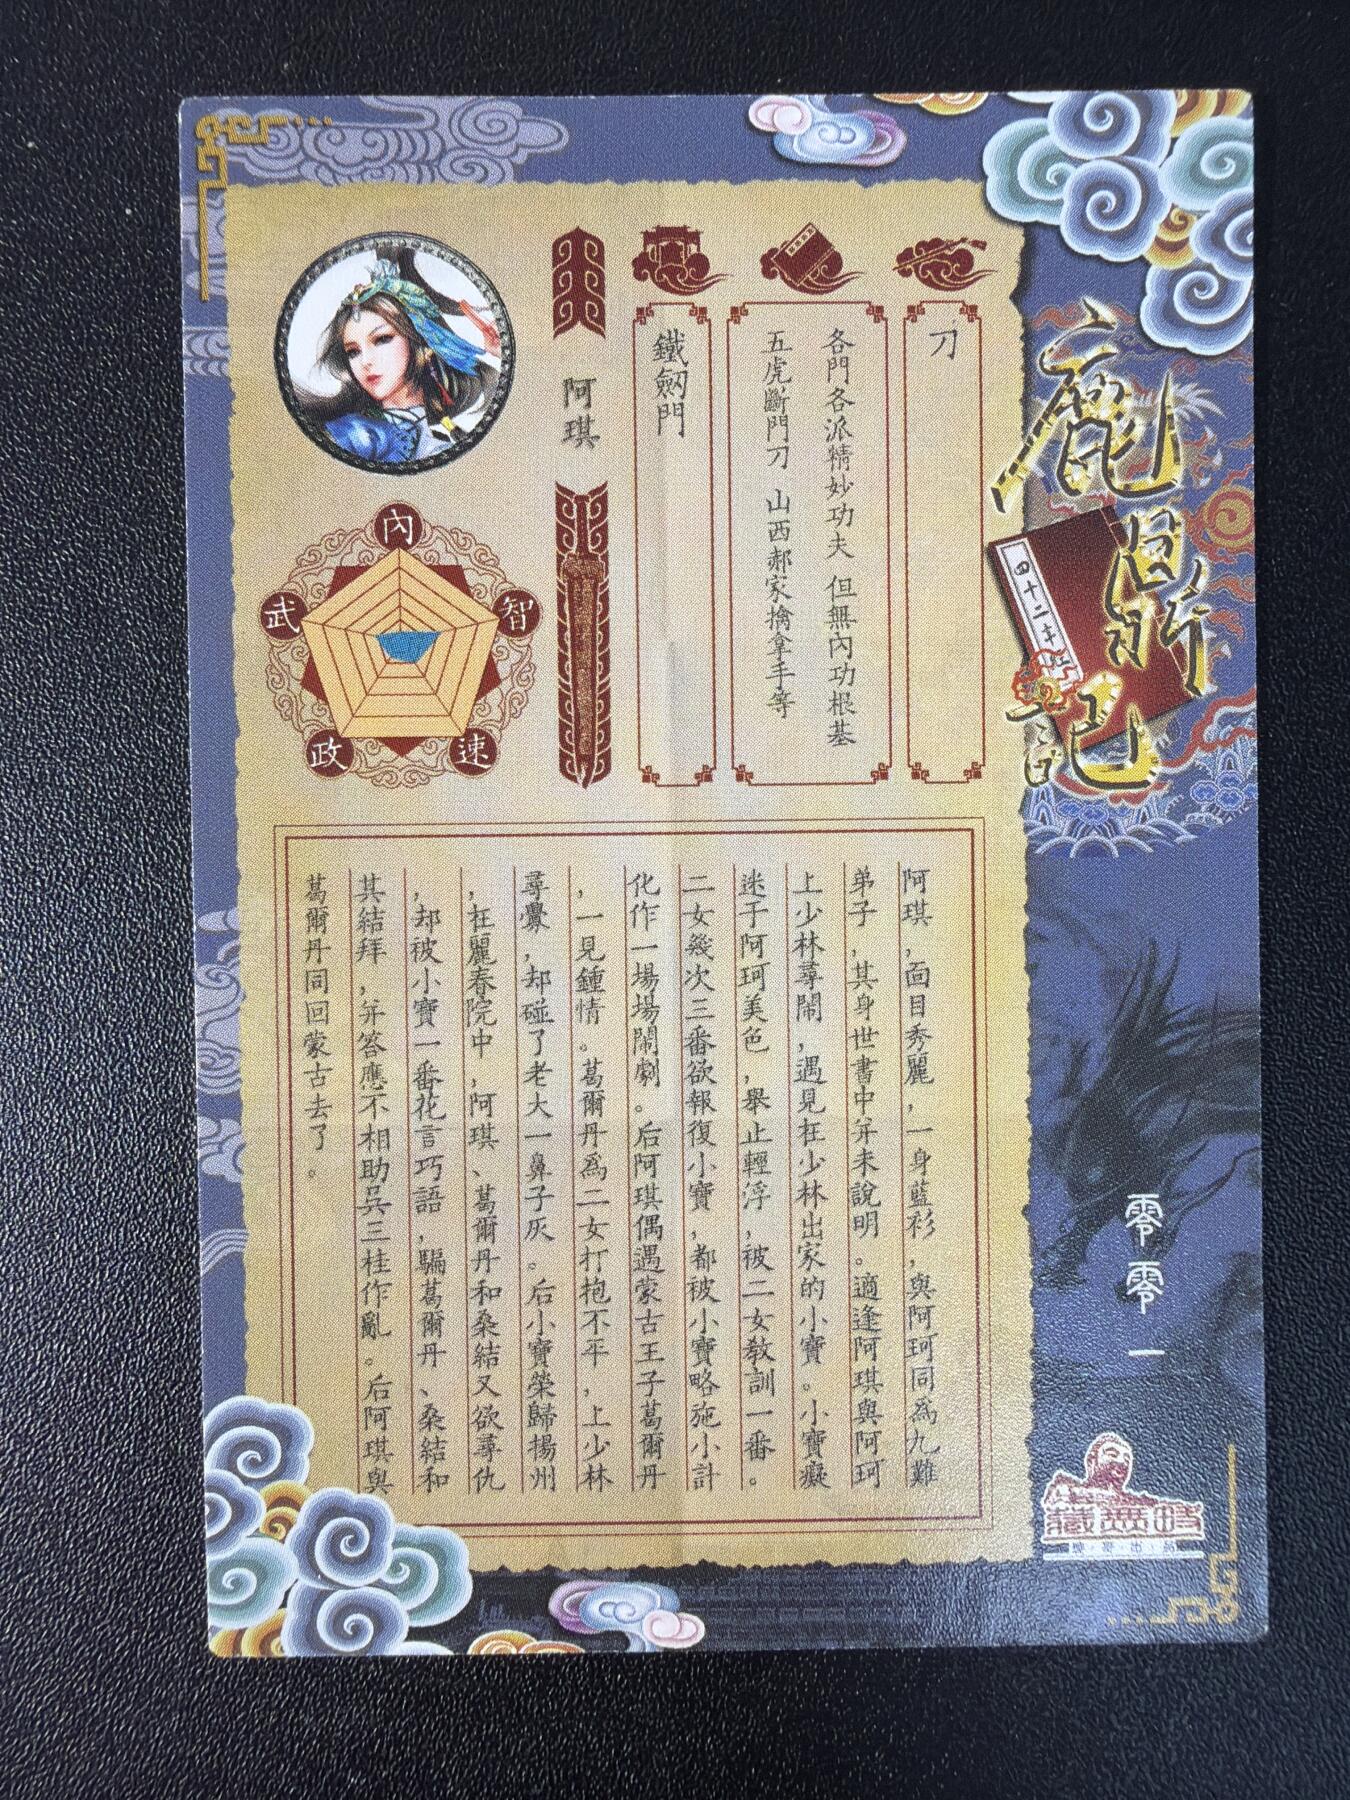 鹿鼎記
四十二章經
零零一
刀
各門各派精妙功夫 但無內功根基
五虎斷門刀 山西郝家擒拿手等
鐵劍門
阿琪
內
智
速
政
武
阿琪,面目秀麗,一身藍衫,與阿珂同為九難
弟子,其身世書中并未說明。適逢阿琪與阿珂
上少林尋鬧,遇見在少林出家的小寶。小寶癡
迷于阿珂美色,舉止輕浮,被二女教訓一番。
二女幾次三番欲報復小寶,都被小寶略施小計
化作一場場鬧劇。后阿琪偶遇蒙古王子葛爾丹
,一見鍾情。葛爾丹為二女打抱不平,上少林
尋釁,却碰了老大一鼻子灰。后小寶榮歸揚州
,在麗春院中,阿琪、葛爾丹和桑結又欲尋仇
,却被小寶一番花言巧語,騙葛爾丹、桑結和
其結拜,并答應不相助吳三桂作亂。后阿琪與
葛爾丹同回蒙古去了。